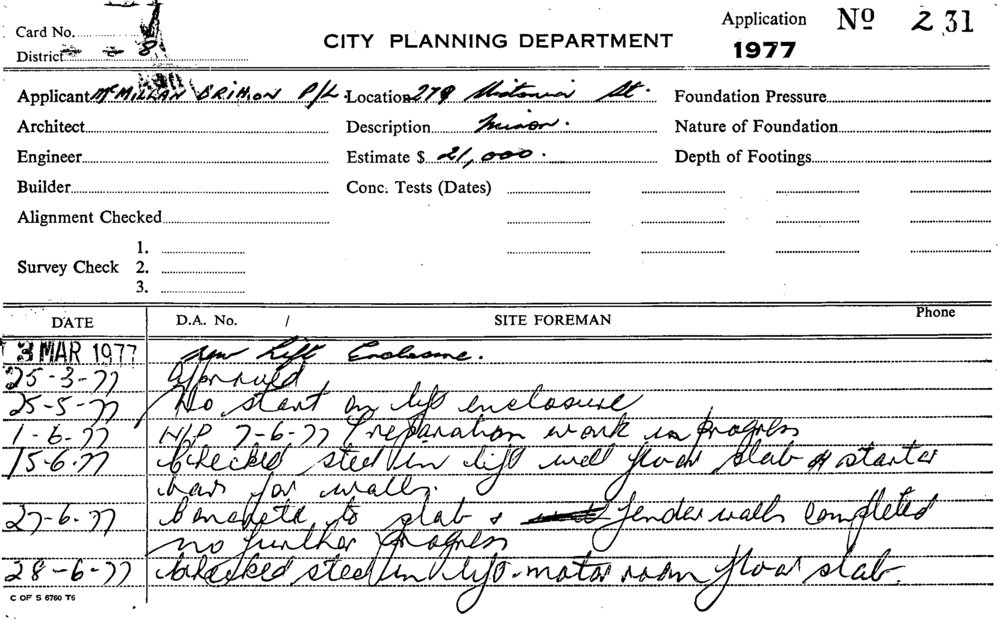 Card No.
District 8
CITY PLANNING DEPARTMENT
Application No 231
1977
Applicant McMILLAN BRIMON P/L Location 279 Victoria St. Foundation Pressure
Architect Description Minor. Nature of Foundation
Engineer Estimate $ 21,000. Depth of Footings
Builder Conc. Tests (Dates)
Alignment Checked
1.
Survey Check 2.
3.
DATE D.A. No. / SITE FOREMAN Phone
3 MAR 1977 New Lift Enclosure.
25-3-77 Approved
25-5-77 No start on lift enclosure
1-6-77 N/P 7-6-77 Preparation work in progress
15-6-77 Checked steel in lift well floor slab & starter
bars for walls.
27-6-77 Concrete to slab & fender walls completed
no further progress
28-6-77 Checked steel in lift-motor room floor slab.
C OF S 6760 T6